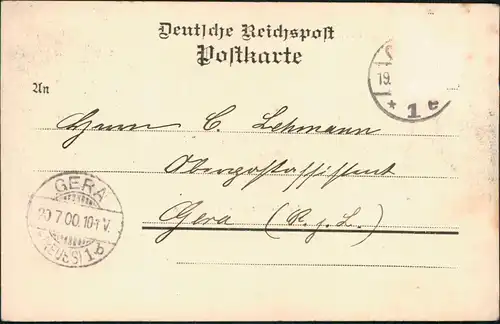 Deutsche Reichspost
Postkarte
19.
* 1 e
An
Herrn C. Lehmann
Oberpostassistent
Gera (R. j. L.)
GERA
20.7.00.10-11V.
(REUSS) 1.b